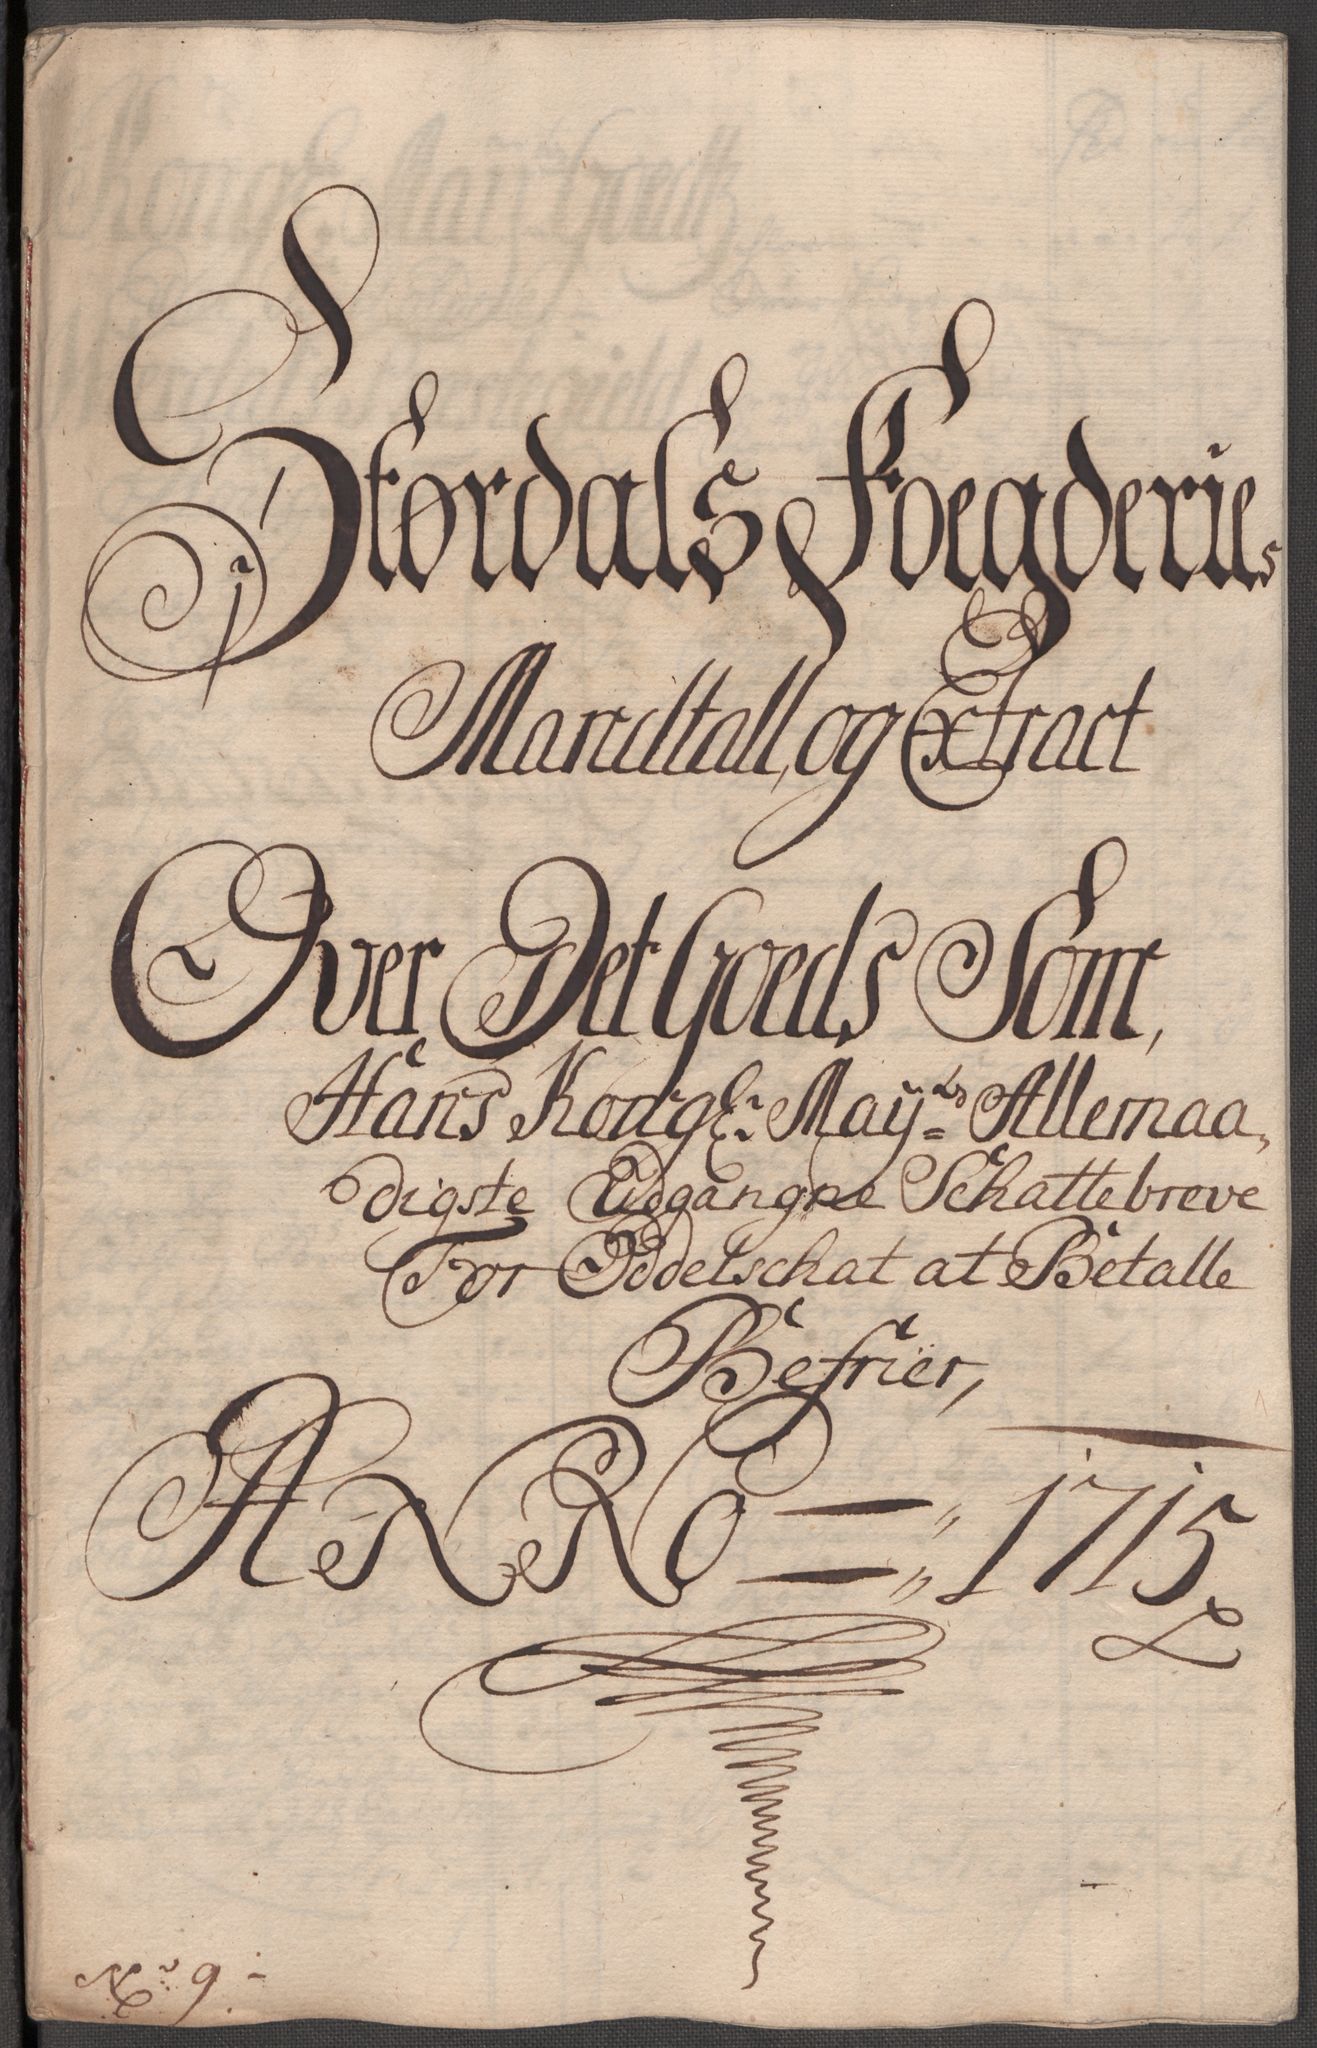 Størdals Foegderies
Mandtall, og Extract
Over Det Goeds Som,
Hans Kongl: May:ts Allernaa,
digste Udgangne Schattebreve
For Oddelschat at Betalle
Befrier,
ANNO 1715
No: 9